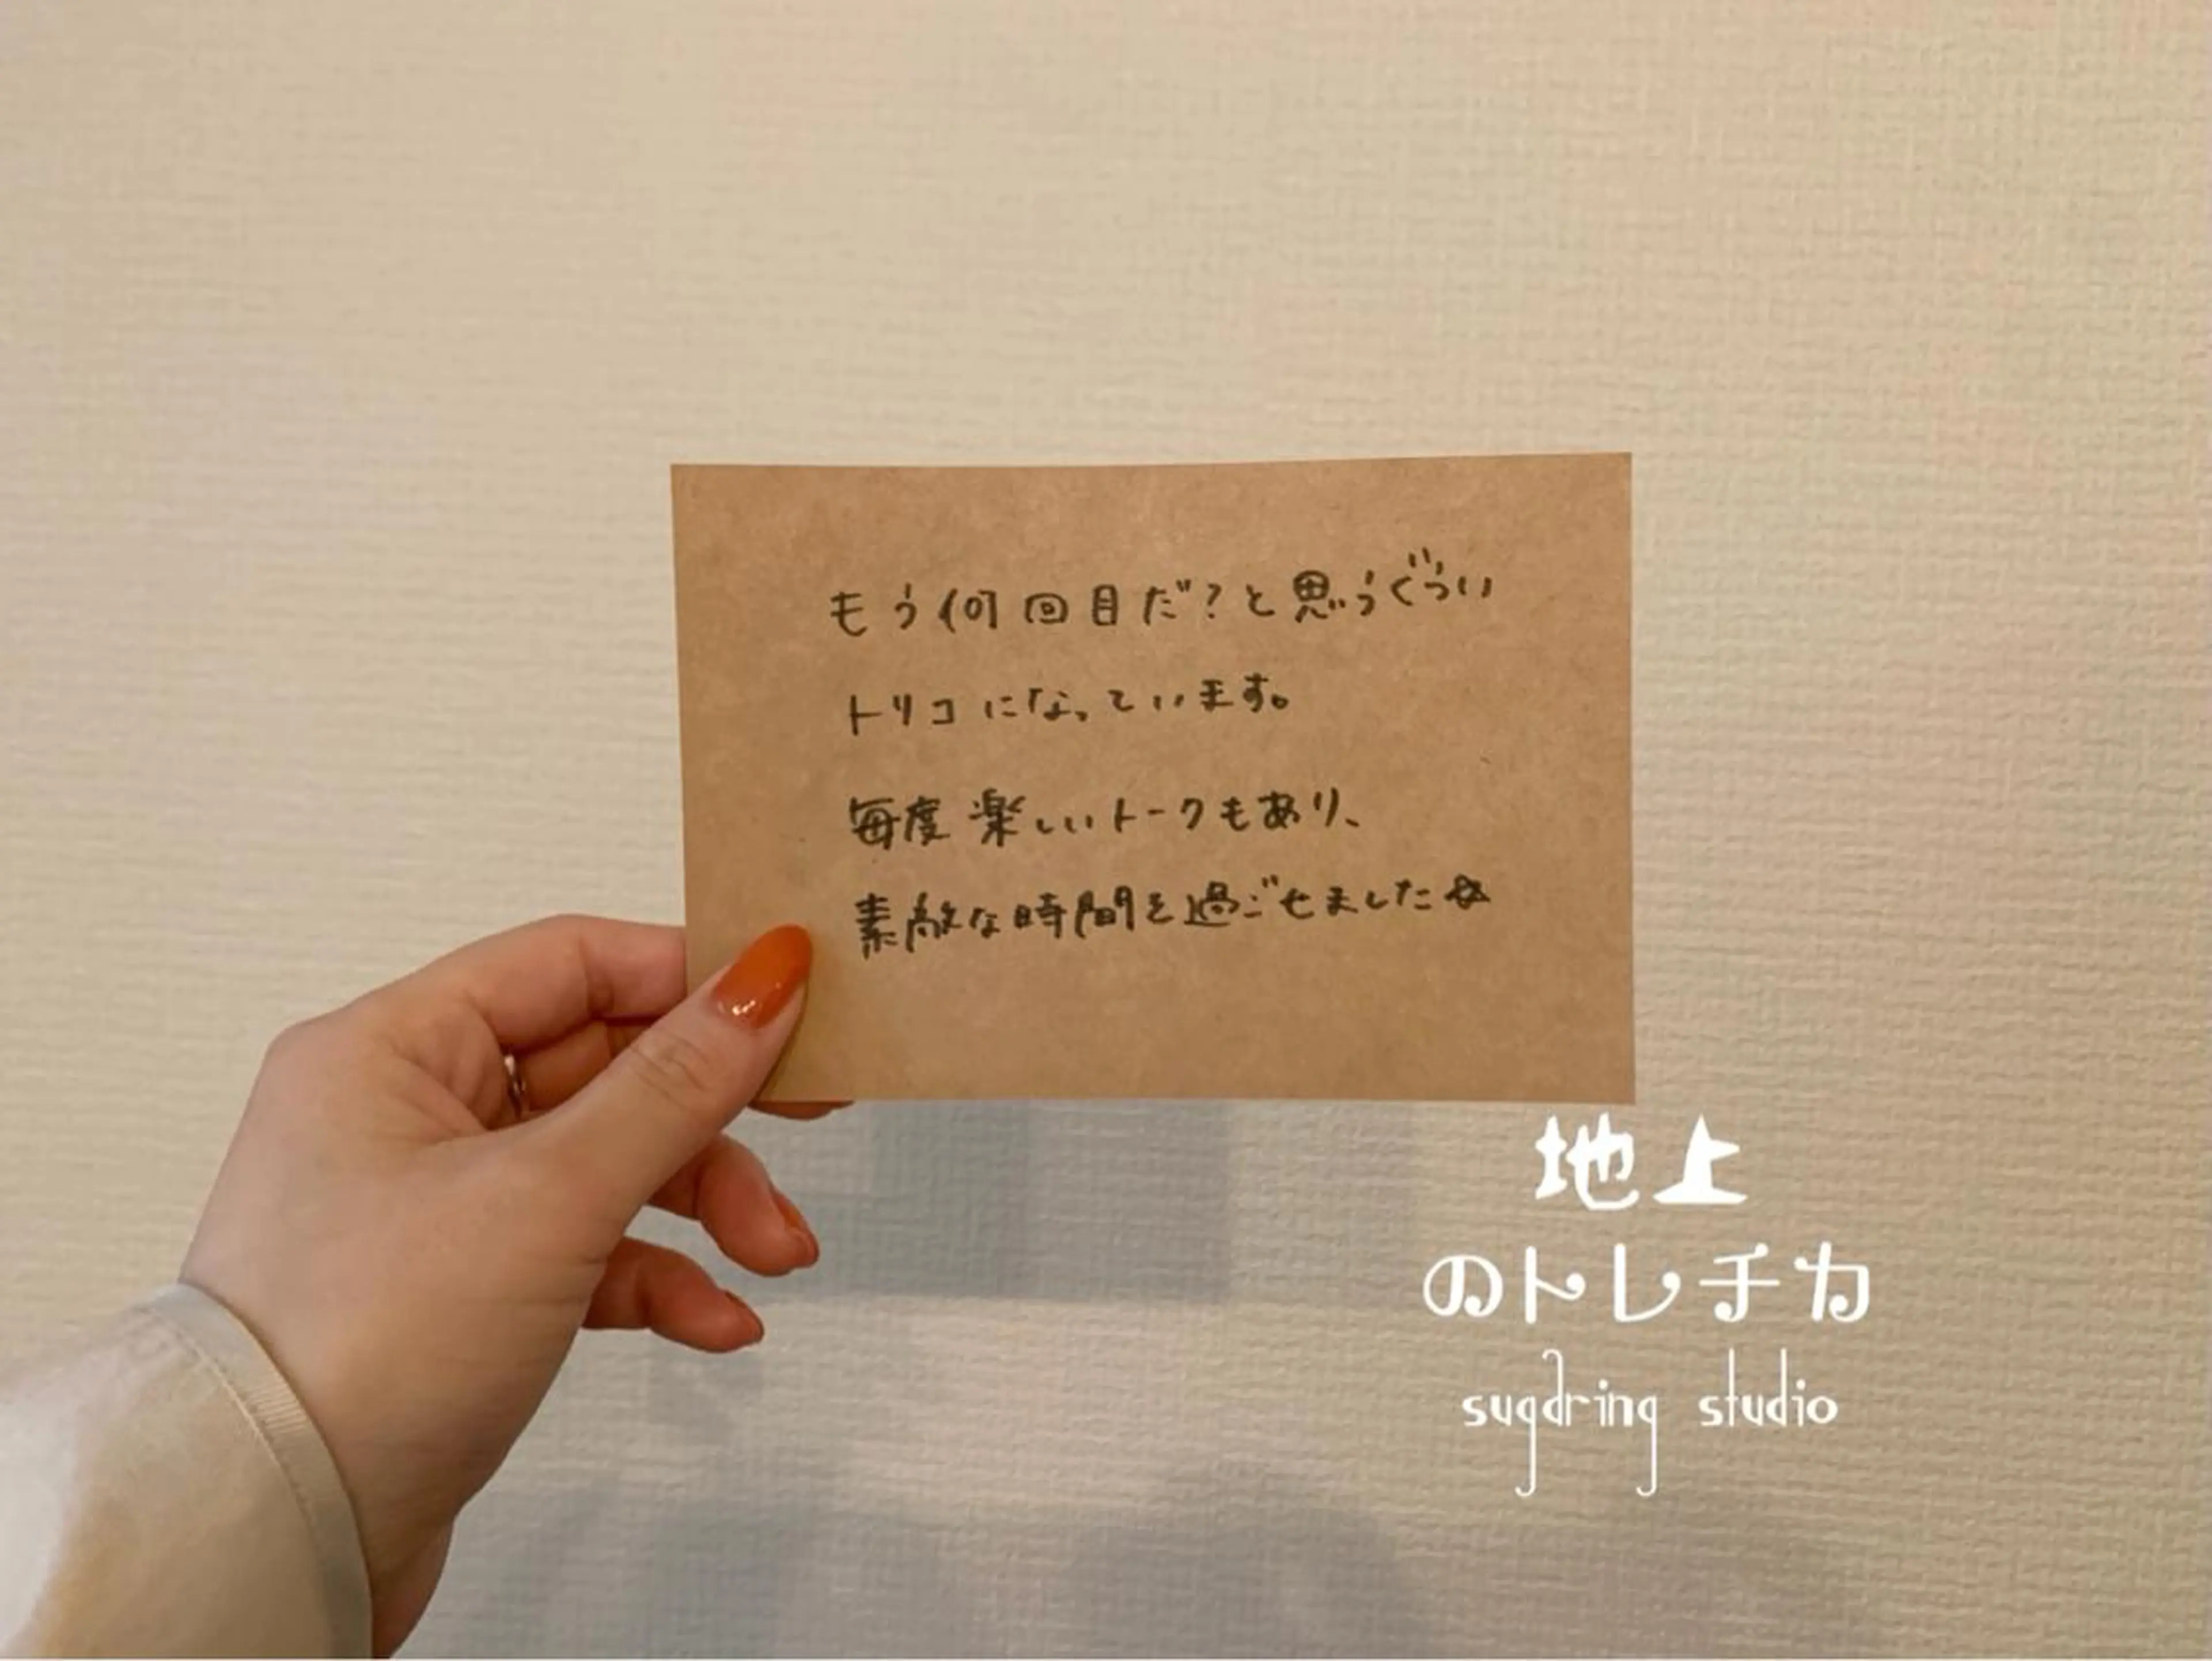 もう何回目だ？と思うぐらい
トリコになっています。
毎度 楽しいトークもあり、
素敵な時間を過ごせました☆
地上
のトレチカ
sugaring studio